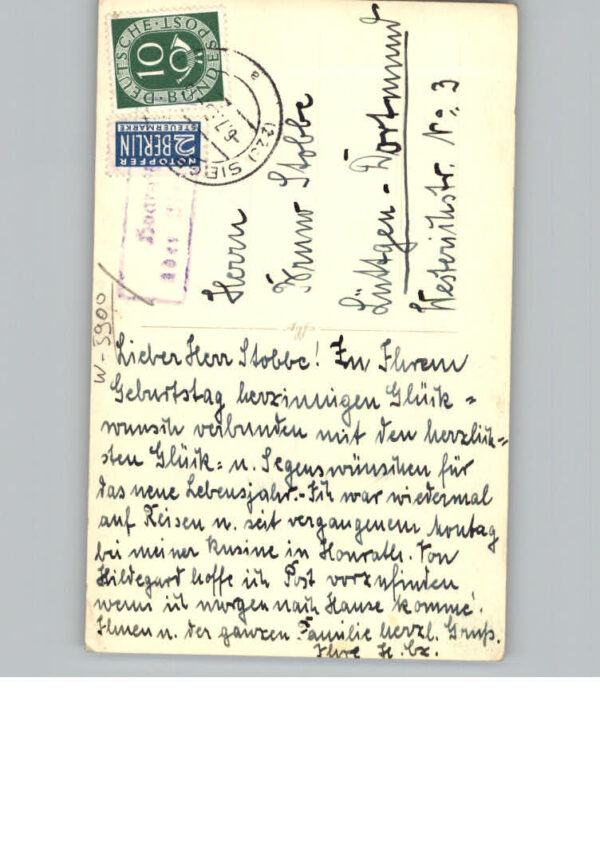 DEUTSCHE BUNDESPOST
10
NOTOPFER
2 BERLIN
STEUERMARKE
(22c) SIEG
-6.7.
a
über
W-5900
Herrn
Bruno Stobbe
Lüttgen-Dortmund
Westerichstr. No. 3
Lieber Herr Stobbe! Zu Ihrem
Geburtstag herzinnigen Glück=
wunsch verbunden mit den herzlich=
sten Glück- u. Segenswünschen für
das neue Lebensjahr.- Ich war wiedermal
auf Reisen u. seit vergangenem Montag
bei meiner Kusine in Honrath. Von
Hildegard hoffe ich Post vorzufinden
wenn ich morgen nach Hause komme.
Ihnen u. der ganzen Familie herzl. Gruß.
Ihre H.